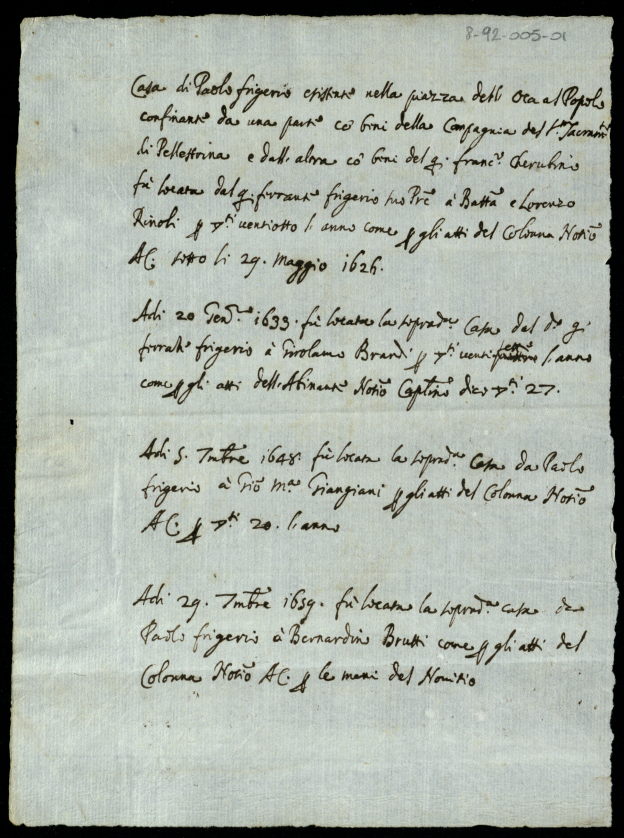 8-92-005-01
Casa di Paolo frigerio esistente nella piazza dell Oca al Popolo
confinante da una parte cõ beni della Compagnia del S.mo Sacram.to
di Pellestrina e dall'altra cõ beni del q. franc.o Cherubino
fù locata dal q. ferrante frigerio suo Pre à Battã e Lorenzo
Rinoli p ti ventiotto l'anno come p gli atti del Colonna Notio
AC. sotto li 29. Maggio 1626.
Adi 20 Gen.o 1633. fù locata la soprad.a Casa dal d.o q.
ferrate frigerio à Girolamo Brandi p ti ventisette l'anno
come p gli atti dell' Abinante Notio Caplino dico ti 27.
Adi 5. 7mbre 1648. fù locata la soprad.a Casa da Paolo
frigerio à Giõ M.a Giangiani p gli atti del Colonna Notio
AC. p ti 20. l'anno
Adi 29. 7mbre 1659. fù locata la soprad.a casa da
Paolo frigerio à Bernardino Brutti come p gli atti del
Colonna Notio AC. p le mani del Novitio